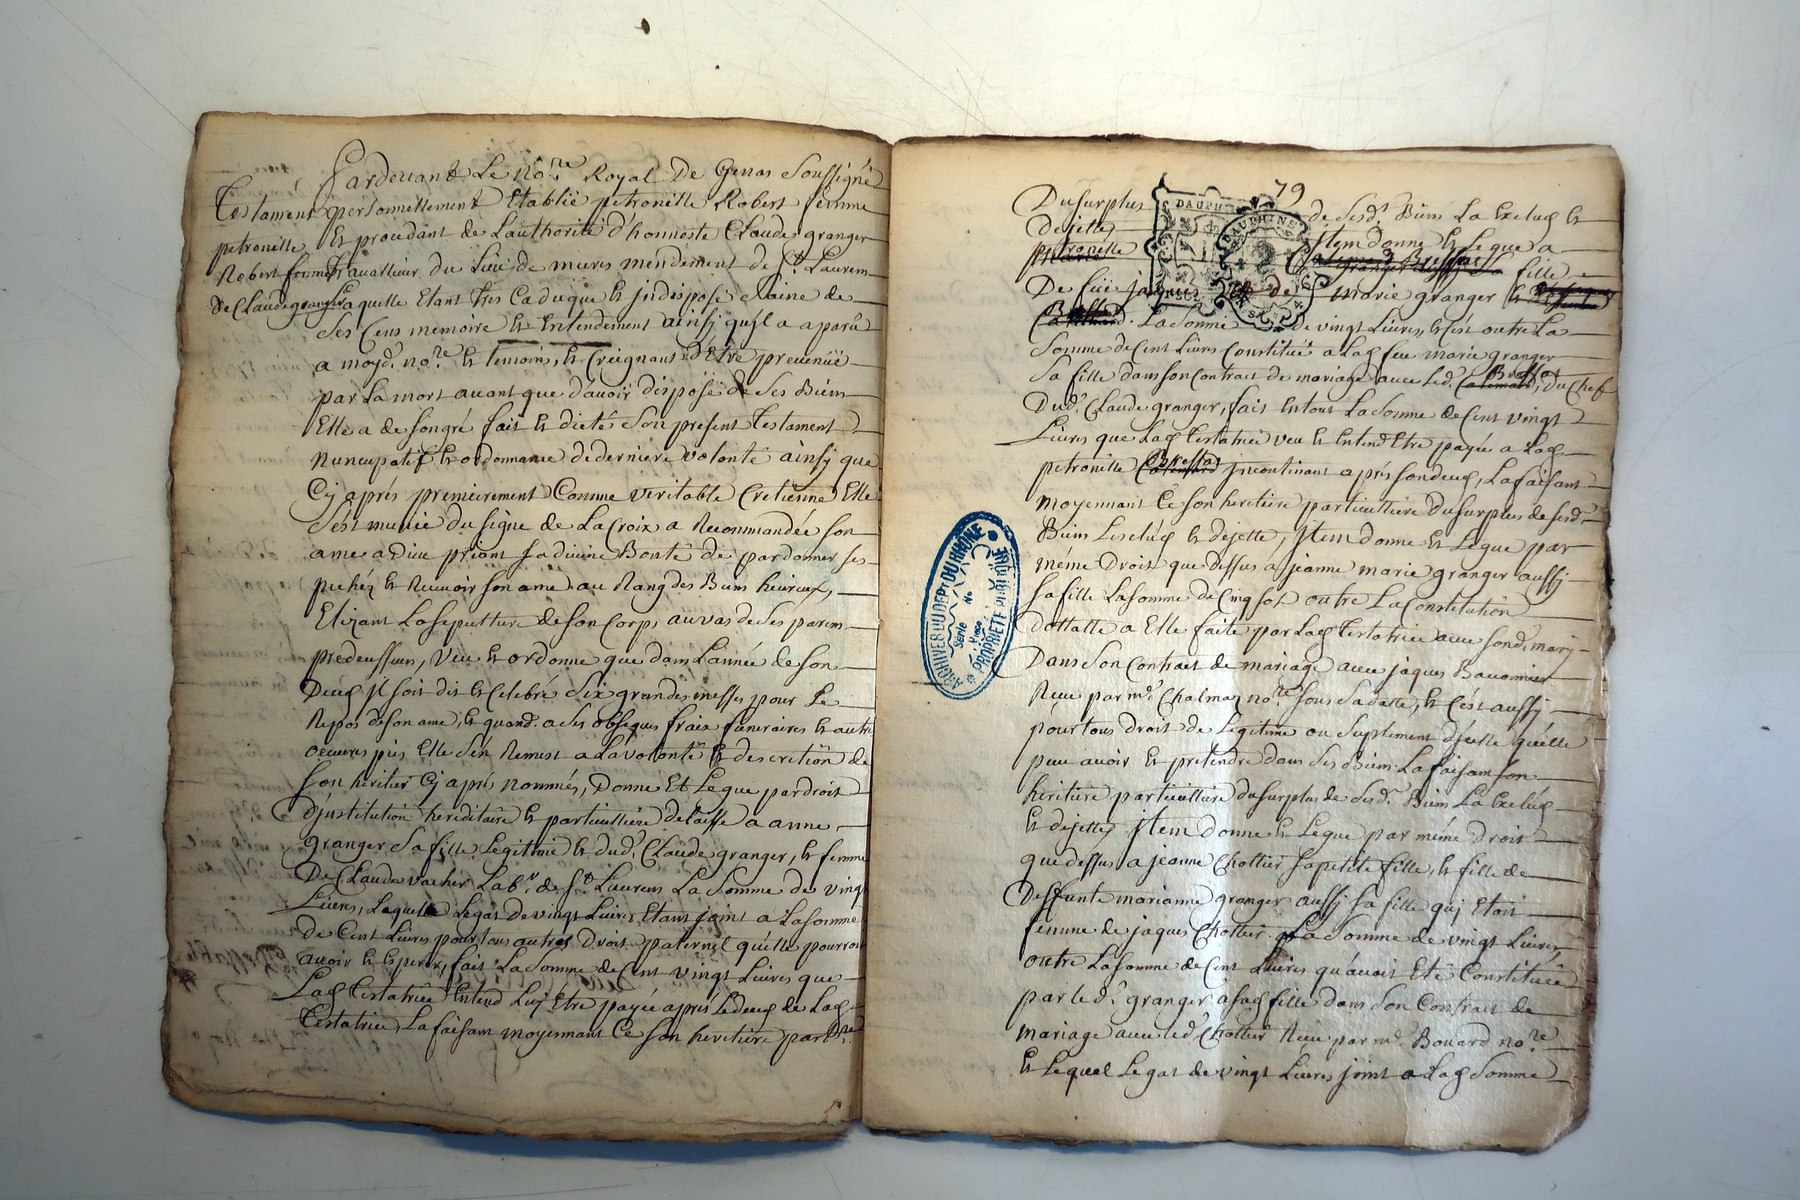 Pardevant Le no.re Royal De Genas Soussigné
personnellement Etablie petronille Robert femme
Et procedant de Lauthorité d'honneste Claude granger
travailleur du Lieu de mures mendement de St. Laurens
Laquelle Etant tres Caduque & jndisposé & saine de
Ses Cens memoire & Entendement ainsy qu'jl a aparû
a moyd. no.re & temoins, & Creignant d'Etre prevenüe
par La mort avant que d'avoir disposé de Ses Biens
Elle a de son gré fait & dictés Son present Testament
nuncupatif & ordonnance de derniere volonté ainsy que
Cy aprés premierement Comme veritable Cretienne Elle
S'est munie du signe de La Croix a Recommandée son
ame a Dieu priant sa divine Bonté de pardonner ses
pechéz & Recevoir son ame au Rang des Bien heureux,
Elizant La sepulture de son Corps au vas de Ses parens
predecesseurs, veu & ordonne que dans L'année de son
Deces jl soit dit & Celebré Six grandes messes pour Le
Repos de son ame, & quand. a Ses obseques fraix funeraires & autre
oeuvres pies Elle s'én Remest a La volonté & descretion de
Son heritier Cy aprés nommés, Donne Et Legue par droit
D'jnstitution hereditaire & particulliere delaisse a anne
granger Sa fille Legitime & dud. Claude granger, & femme
De Claude vacher Lab.r de St. Laurens La Somme de vingt
Livres, Laquelle Legat de vingt Livres Etant joint a La somme
de Cent Livres pour tous autres Droit paternel qu'elle pourroit
avoir & Esperer, fait La Somme de Cent vingt Livres que
Lad. testatrice Entend Luy Etre payée aprés Le deces de Lad.
Testatrice, La faisant moyennant Ce Son heritiere part.re
Testament
petronille
Robert femme
De Claude granger
79
DAUPHINE
DAUPHINE
Du surplus de Sesd. Biens La Exclus &
Dejette jtem donne & Legue a
petronille fille
De feüe marie granger
La Somme de vingt Livres, & c'est outre La
Somme de Cent Livres Constitué a Lad. feu marie granger
Sa fille dans son Contrat de mariage avec Led. Bressat, du Chef
Dud. Claude granger, fais En tout La Somme de Cent vingt
Livres que Lad. Testatrice veu & Entend Etre payée a Lad.
petronille Bressat jncontinant aprés son deces, La faisant
moyennant Ce son heritiere particulliere du surplus de sesd.
Biens L'exclus & dejette, jtem donne & Legue par
méme Droit que dessus a jeanne marie granger aussy
Sa fille La somme de Cinq sols outre La Constitution
dottalle a Elle faite par Lad. Testatrice avec sond. mary
Dans Son Contrat de mariage avec jaques Bavonnier
Receu par m.e Chalman no.re sous sa datte, & C'ést aussy
pour tous droit de Legitime ou Suplement d'jcelle qu'elle
peu avoir & pretendre dans Ses Biens La faisant son
heritiere particulliere du surplus de Sesd. Biens La Exclus
& dejette, jtem donne & Legue par méme droit
que dessus a jeanne Chottier sa petite fille, & fille de
Deffunte marianne granger aussy sa fille quj Etoit
femme de jaques Chottier La Somme de vingt Livres,
outre La somme de Cent Livres qu'avoit Eté Constituée
par led. granger a sad. fille dans Son Contrat de
mariage avec led. Chottier Receu par m.e Bouard no.re
& Lequel Legat de vingt Livres joint a Lad. Somme
ARCHIVES DU DEPT DU RHONE
Série No
Liasse
PROPRIÉTÉ PUBLIQUE